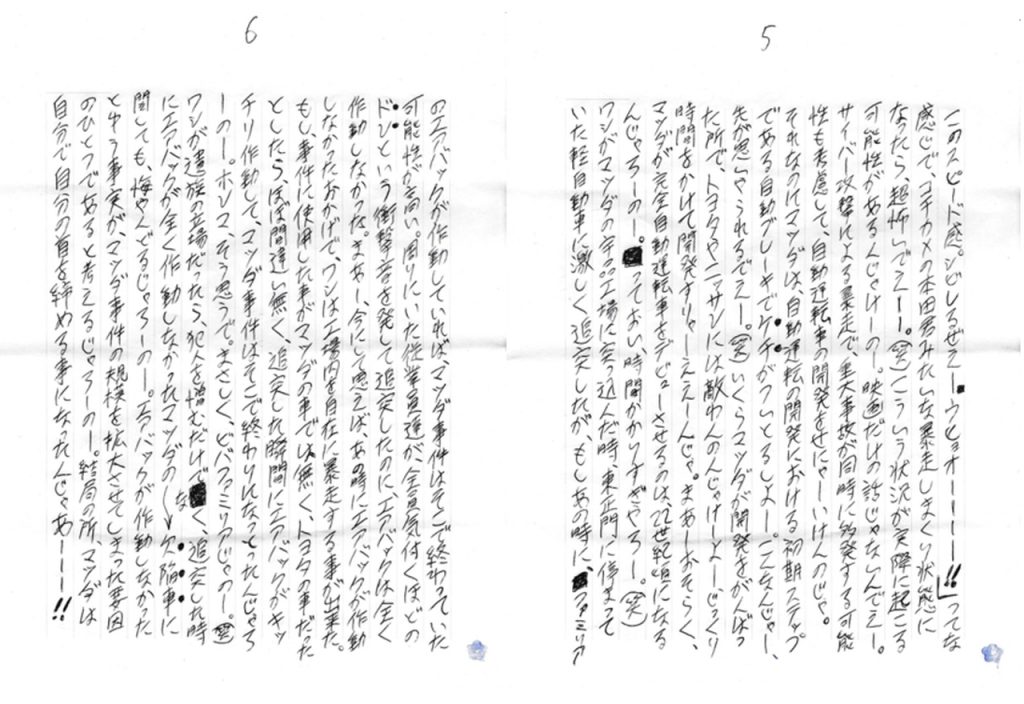 5
このスピード感。シビレるぜえー。ウヒョオーーーーー!!」ってな
感じで、コチカメの本田君みたいな暴走しまくり状態に
なったら、超怖いでえー。(笑)こういう状況が実際に起こる
可能性があるんじゃけーのー。映画だけの話じゃないんでえー。
サイバー攻撃による暴走で、重大事故が同時に多発する可能
性も考慮して、自動運転車の開発をせにゃーいけんのじゃ。
それなのにマツダは、自動運転の開発における初期ステップ
である自動ブレーキでケチがついとるしよー。こんなんじゃー、
先が思いやられるでえー。(笑)いくらマツダが開発をがんばっ
た所で、トヨタやニッサンには敵わんのんじゃけーよー。じっくり
時間をかけて開発すりゃーええーんじゃ。まあーおそらく、
マツダが完全自動運転車をデビューさせるのは22世紀頃になる
んじゃろーのー。って、おい、時間かかりすぎやろー。(笑)
ワシがマツダの宇品工場に突っ込んだ時、東正門に停まって
いた軽自動車に激しく追突したが、もしあの時に、ファミリア
6
のエアバックが作動していれば、マツダ事件はそこで終わっていた
可能性が高い。周りにいた従業員達が、全員気付くほどの
ドンという衝撃音を発して追突したのに、エアバックは全く
作動しなかった。まあー、今にして思えば、あの時にエアバックが作動
しなかったおかげで、ワシは工場内を自在に暴走する事が出来た。
もし、事件に使用した車がマツダの車では無く、トヨタの車だった
としたら、ほぼ間違い無く、追突した瞬間にエアバックがキッ
チリ作動して、マツダ事件はそこで終わりになっとったんじゃろ
ーのー。ホンマ、そう思うで。まさしく、ビバファミリアじゃのー。(笑)
ワシが遺族の立場だったら、犯人を憎むだけでなく、追突した時
にエアバックが全く作動しなかったマツダの欠陥車に
関しても、悔やんどるじゃろーのー。エアバックが作動しなかった
とゆう事実が、マツダ事件の規模を拡大させてしまった要因
のひとつであると考えるじゃろーのー。結局の所、マツダは
自分で自分の首を締める事になったんじゃあーーー!!